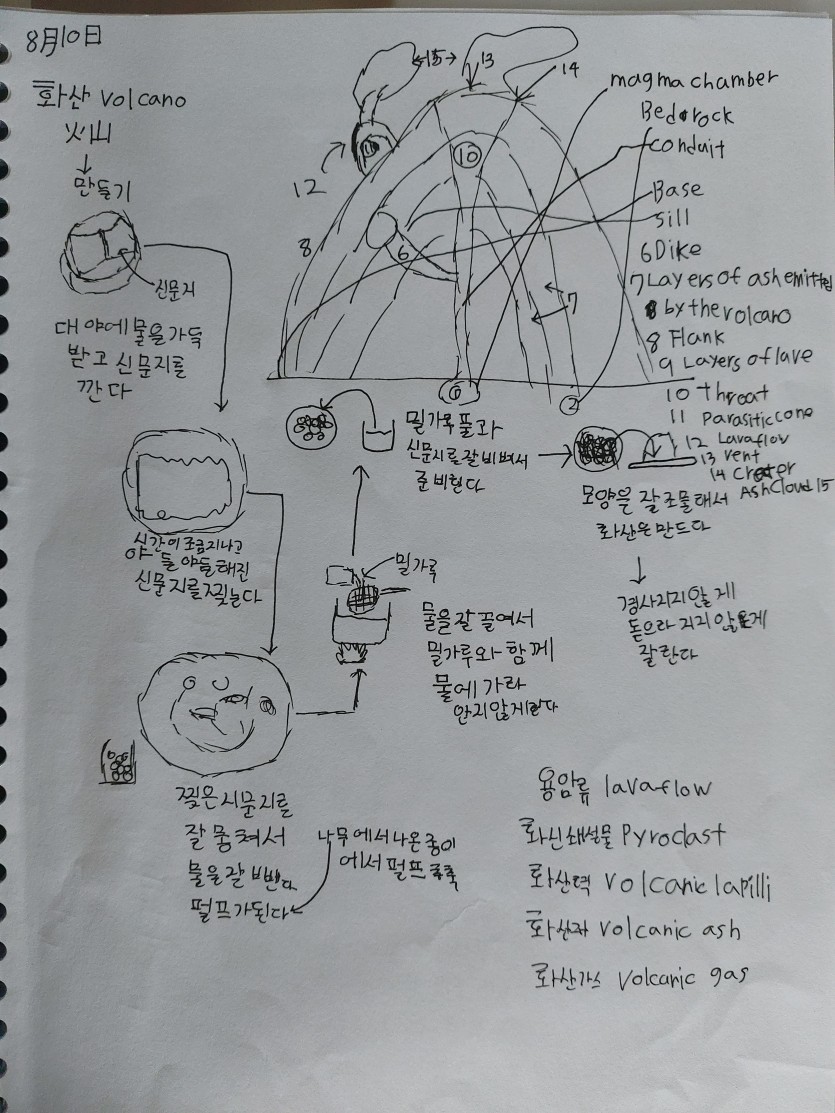 8月10日
화산 volcano
火山
만들기
신문지
대야에 물을 가득
받고 신문지를
깐다
시간이 조금지나고
야들야들해진
신문지를 찢는다
찢은 신문지를
잘 뭉쳐서
물을 잘
펄프가된다
나무에서 나온 종이
에서 펄프
밀가루
물을 잘 끓여서
밀가루와 함께
물에 가라
안지않게한다
밀가루풀과
신문지를 잘 비벼서
준비한다
모양을 잘 조물해서
화산은 만드다
경사지지않게
잘란다
15
13
14
12
11
10
8
6
7
6
2
magma chamber
Bedrock
conduit
Base
sill
6 Dike
7 Layers of ash emitted
8 by the volcano
8 Flank
9 Layers of lave
10 throat
11 parasitic cone
12 Lavaflow
13 vent
14 Crater
Ash Cloud 15
용암류 lavaflow
화산쇄설물 Pyroclast
화산력 volcanic lapilli
화산재 volcanic ash
화산가스 volcanic gas